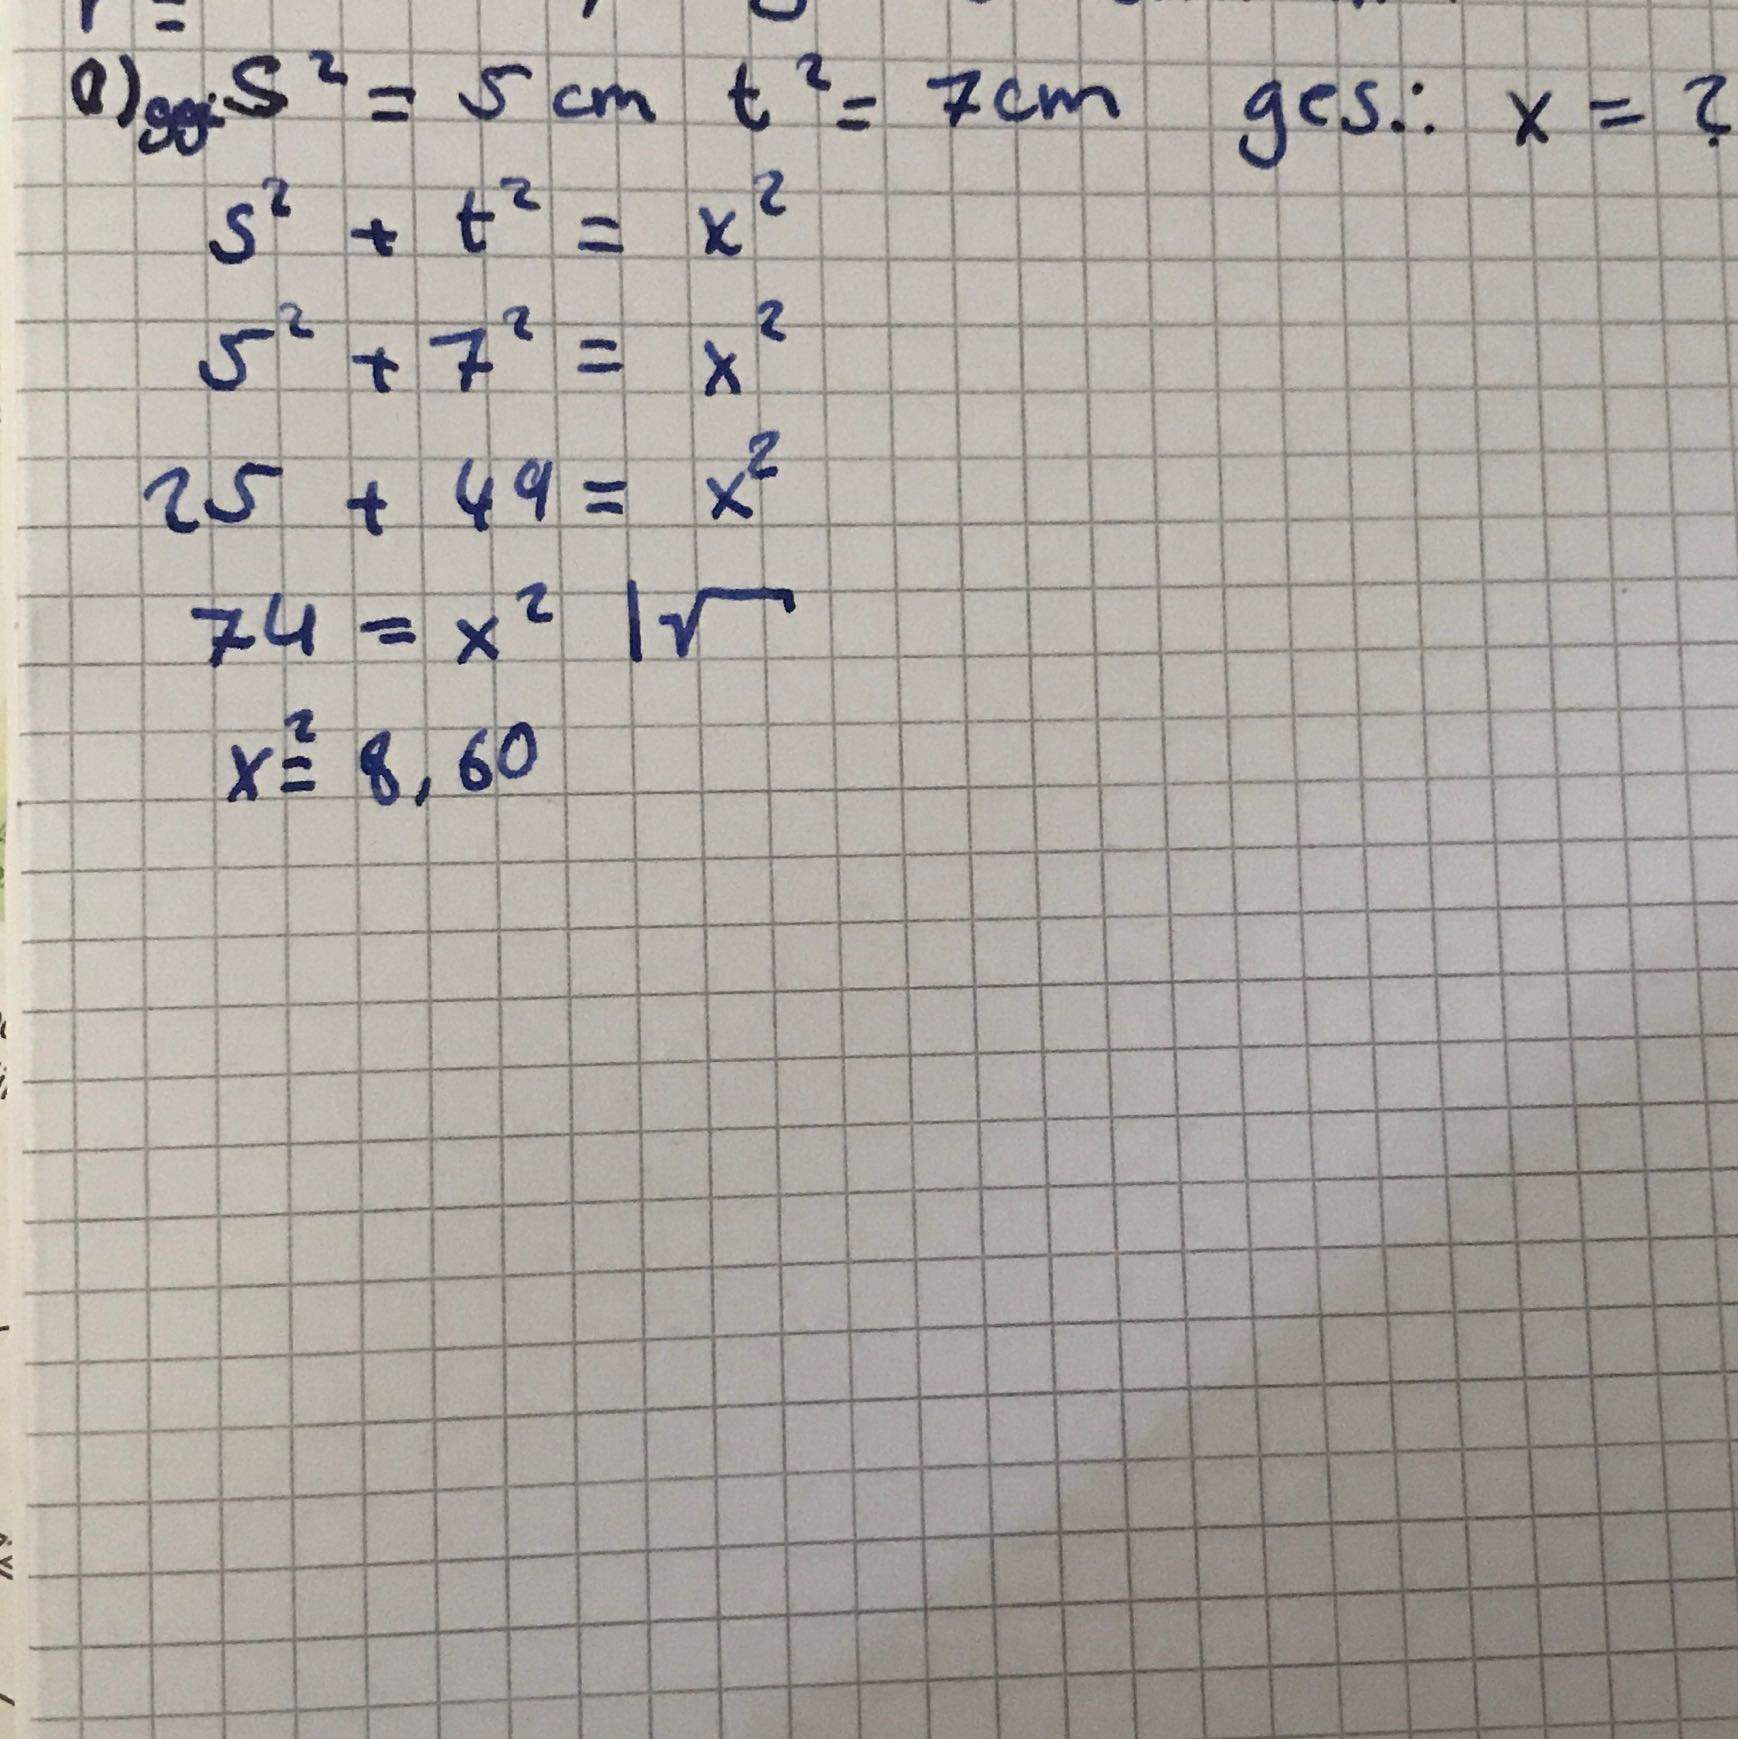 a) geg: S² = 5 cm t² = 7cm ges.: x = ?
s² + t² = x²
5² + 7² = x²
25 + 49 = x²
74 = x² |√
x² = 8,60